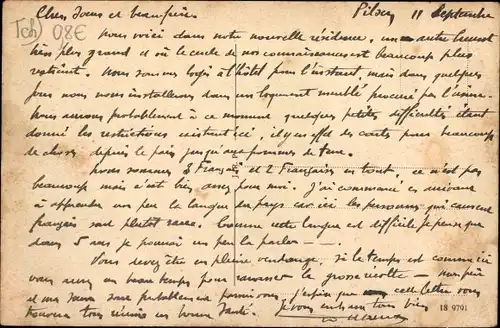 Pilsen 11 Septembre
(Tch) 08€
Chers sœur et beau-frère.
nous voici dans notre nouvelle résidence, un autre
très plus grand et où le cercle de nos connaissances est beaucoup plus
restreint. Nous sommes logés à l'hôtel pour l'instant, mais dans quelques
jours nous nous installerons dans un logement meublé procuré par l'usine.
Nous aurons probablement à ce moment quelques petites difficultés étant
donné les restrictions existant ici, il y a en effet des cartes pour beaucoup
de choses depuis le pain jusqu'aux pommes de terre.
Nous sommes 3 Français et 2 Françaises en tout, ce n'est pas
beaucoup mais c'est bien assez pour moi. J'ai commencé en arrivant
à apprendre un peu la langue du pays car ici les personnes qui causent
français sont plutôt rares. Comme cette langue est difficile je pense que
dans 5 ans je pourrai un peu la parler - - .
Vous devez être en pleine vendange, si le temps est comme ici
vous avez eu beau temps pour ramasser la grosse récolte -
et ma sœur sont probablement parmi vous, j'espère que cette lettre vous
trouvera tous réunis en bonne santé. Je vous embrasse tous bien
18 9791